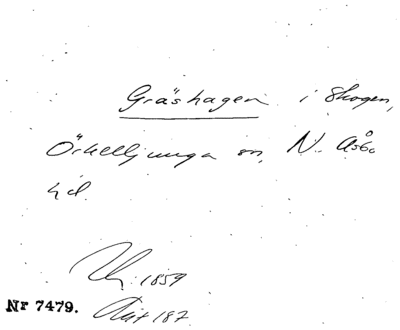 Gräshagen i Skogen,
Örkelljunga sn, N. Åsbo
hd.
1859
Nr 7479. Akt 187